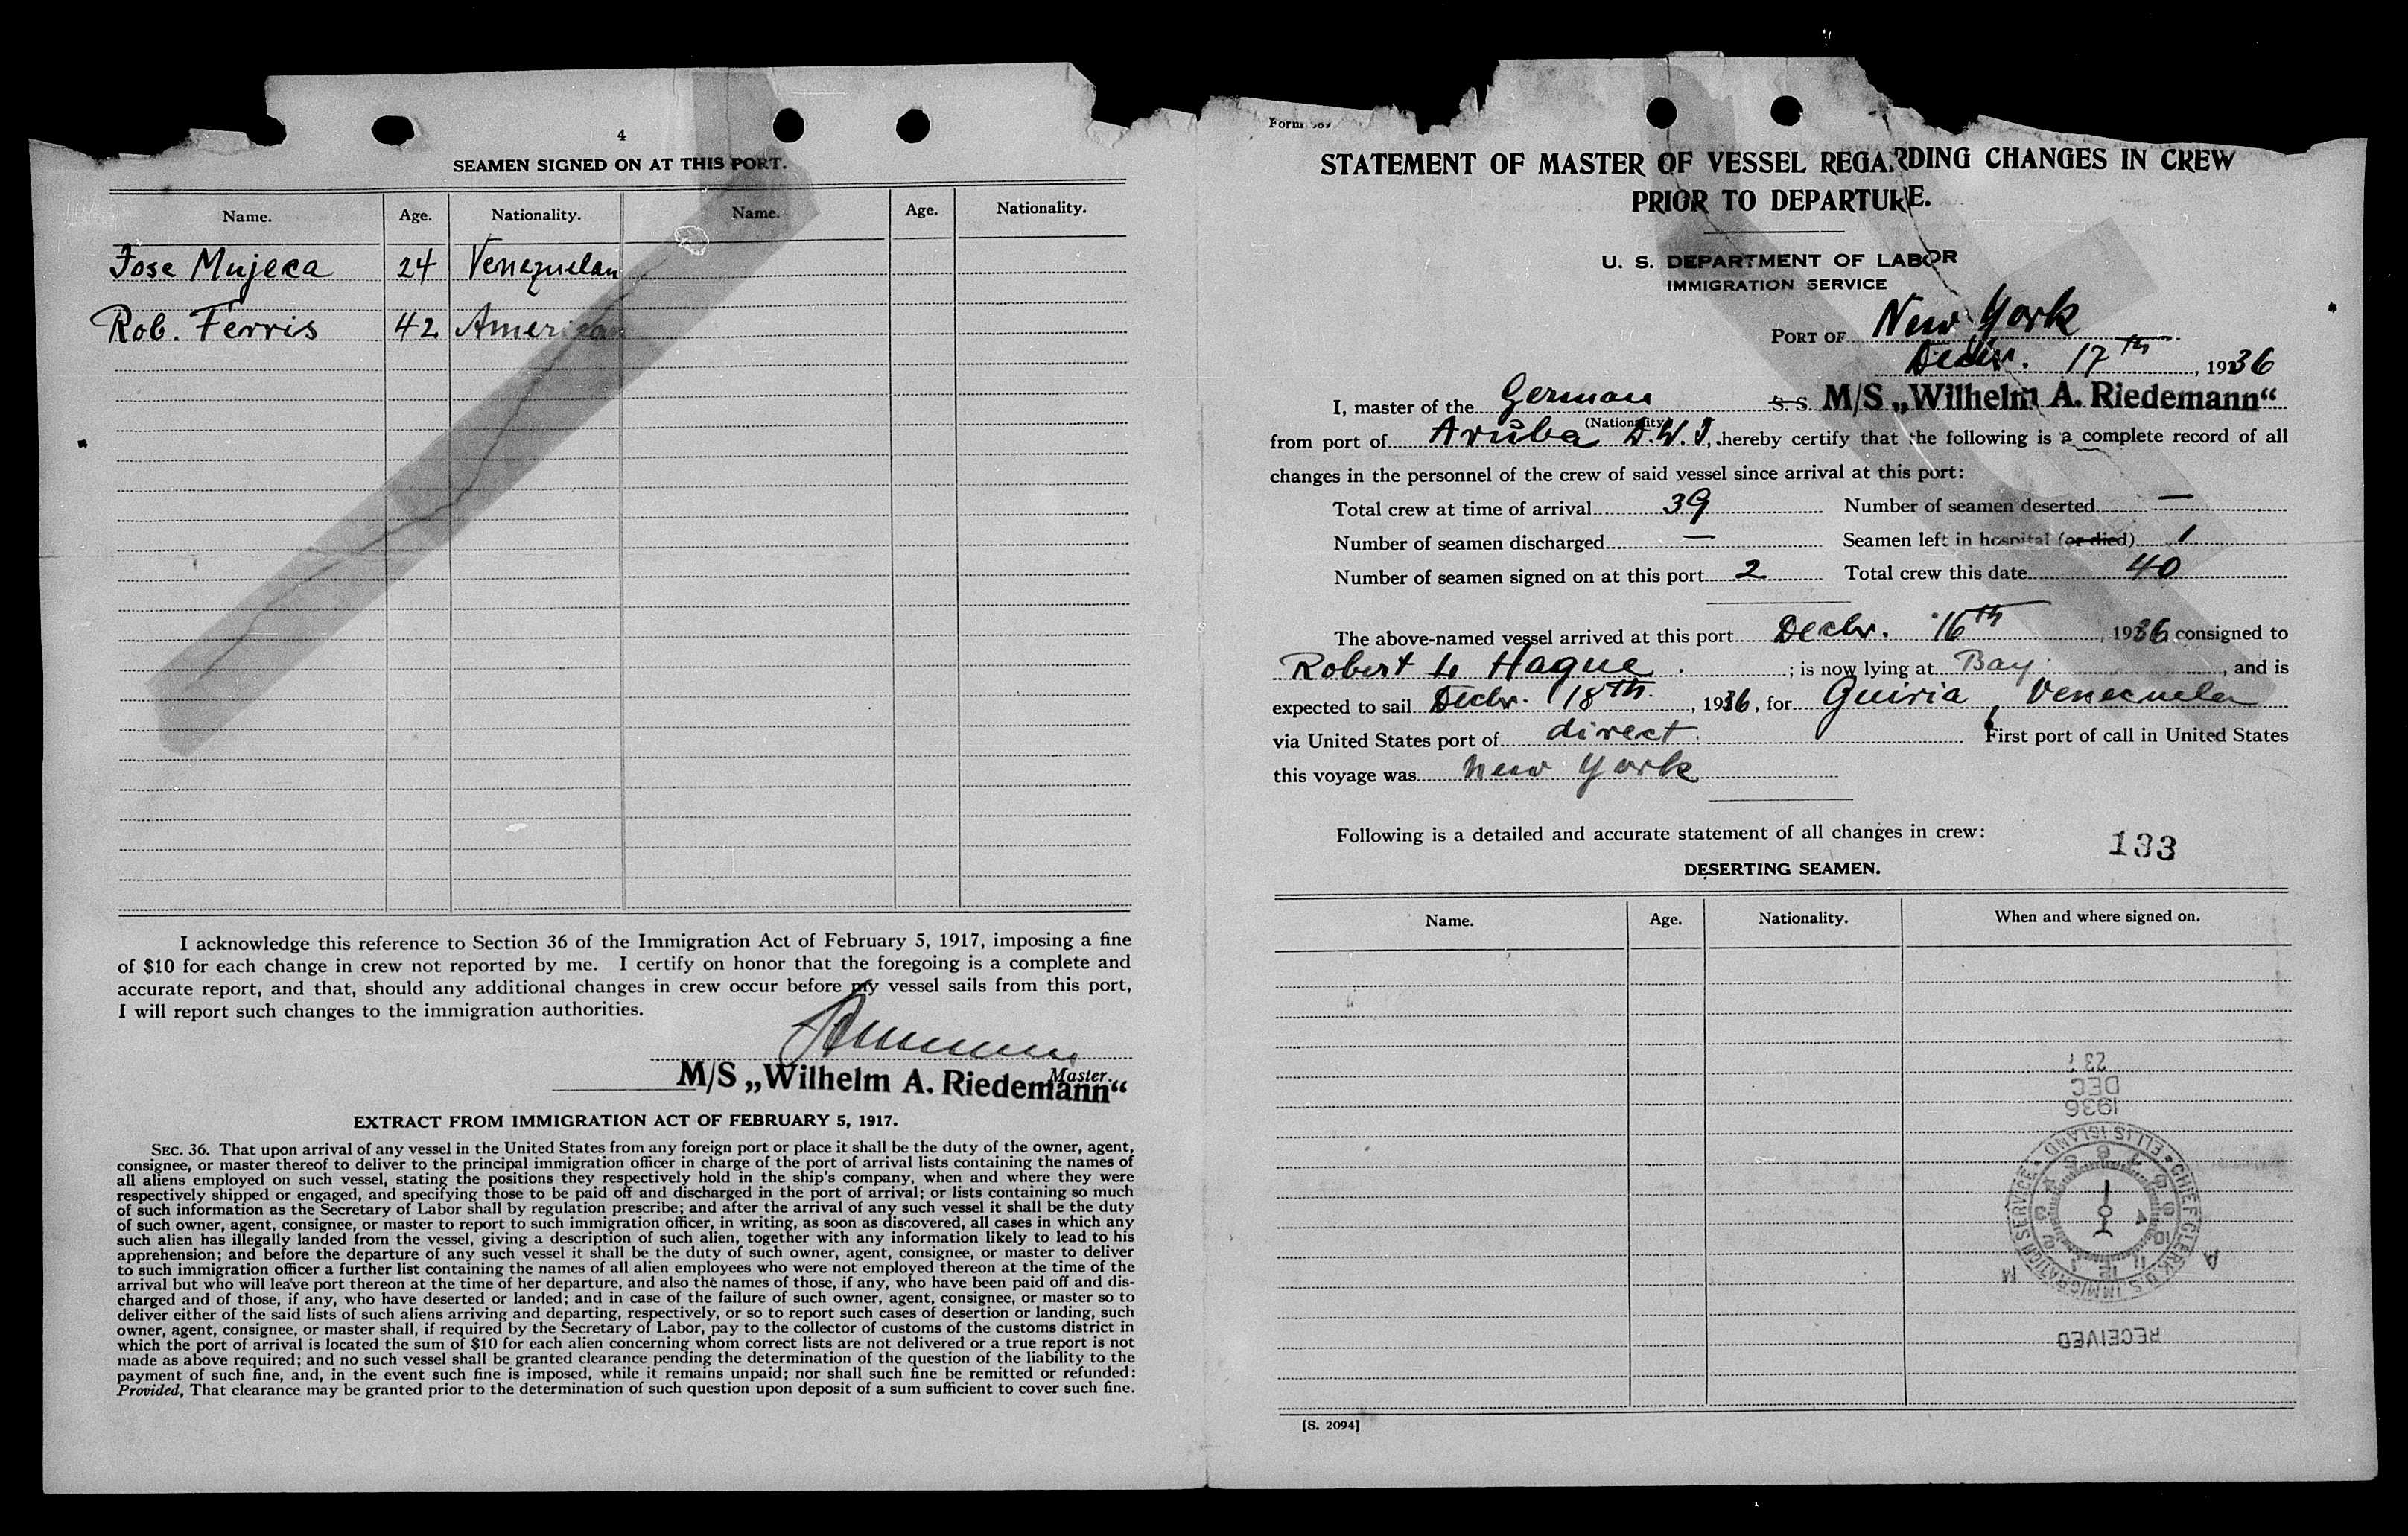 4
SEAMEN SIGNED ON AT THIS PORT.
Name. Age. Nationality. Name. Age. Nationality.
Jose Mujeca 24 Venezuelan
Rob. Ferris 42 American
I acknowledge this reference to Section 36 of the Immigration Act of February 5, 1917, imposing a fine
of $10 for each change in crew not reported by me. I certify on honor that the foregoing is a complete and
accurate report, and that, should any additional changes in crew occur before my vessel sails from this port,
I will report such changes to the immigration authorities.
Master.
M/S „Wilhelm A. Riedemann“
EXTRACT FROM IMMIGRATION ACT OF FEBRUARY 5, 1917.
SEC. 36. That upon arrival of any vessel in the United States from any foreign port or place it shall be the duty of the owner, agent,
consignee, or master thereof to deliver to the principal immigration officer in charge of the port of arrival lists containing the names of
all aliens employed on such vessel, stating the positions they respectively hold in the ship's company, when and where they were
respectively shipped or engaged, and specifying those to be paid off and discharged in the port of arrival; or lists containing so much
of such information as the Secretary of Labor shall by regulation prescribe; and after the arrival of any such vessel it shall be the duty
of such owner, agent, consignee, or master to report to such immigration officer, in writing, as soon as discovered, all cases in which any
such alien has illegally landed from the vessel, giving a description of such alien, together with any information likely to lead to his
apprehension; and before the departure of any such vessel it shall be the duty of such owner, agent, consignee, or master to deliver
to such immigration officer a further list containing the names of all alien employees who were not employed thereon at the time of the
arrival but who will leave port thereon at the time of her departure, and also the names of those, if any, who have been paid off and dis-
charged and of those, if any, who have deserted or landed; and in case of the failure of such owner, agent, consignee, or master so to
deliver either of the said lists of such aliens arriving and departing, respectively, or so to report such cases of desertion or landing, such
owner, agent, consignee, or master shall, if required by the Secretary of Labor, pay to the collector of customs of the customs district in
which the port of arrival is located the sum of $10 for each alien concerning whom correct lists are not delivered or a true report is not
made as above required; and no such vessel shall be granted clearance pending the determination of the question of the liability to the
payment of such fine, and, in the event such fine is imposed, while it remains unpaid; nor shall such fine be remitted or refunded:
Provided, That clearance may be granted prior to the determination of such question upon deposit of a sum sufficient to cover such fine.
Form
STATEMENT OF MASTER OF VESSEL REGARDING CHANGES IN CREW
PRIOR TO DEPARTURE.
U. S. DEPARTMENT OF LABOR
IMMIGRATION SERVICE
PORT OF New York
Decbr. 17th, 1936
I, master of the German S. S. M/S „Wilhelm A. Riedemann“
(Nationality)
from port of Aruba D.W.I., hereby certify that the following is a complete record of all
changes in the personnel of the crew of said vessel since arrival at this port:
Total crew at time of arrival 39 Number of seamen deserted —
Number of seamen discharged — Seamen left in hospital (or died) 1
Number of seamen signed on at this port 2 Total crew this date 40
The above-named vessel arrived at this port Decbr. 16th, 1936, consigned to
Robert L. Hague ; is now lying at Bay, and is
expected to sail Decbr. 18th, 1936, for Guiria, Venecuela
via United States port of direct First port of call in United States
this voyage was New York
Following is a detailed and accurate statement of all changes in crew:
133
DESERTING SEAMEN.
Name. Age. Nationality. When and where signed on.
23
DEC
1936
CHIEF CLERK U.S. IMMIGRATION SERVICE • ELLIS ISLAND •
A M
RECEIVED
[S. 2094]